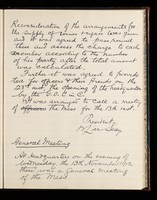 Reconsideration of the arrangements for
the supply of
and it was agreed to pass round
and assess the charge to each
member according to the number
of his party after the total amount
was calculated.
Further it was agreed to
tea for officers & their friends on the
23rd inst, the opening of the headquarters
the
It was arranged to call a meeting
of officers the Mess for the 13th inst.
President,
General Meeting
At Headquarters on the evening of
Wednesday, the 13th November, 1912
there was a General Meeting
of the Mess